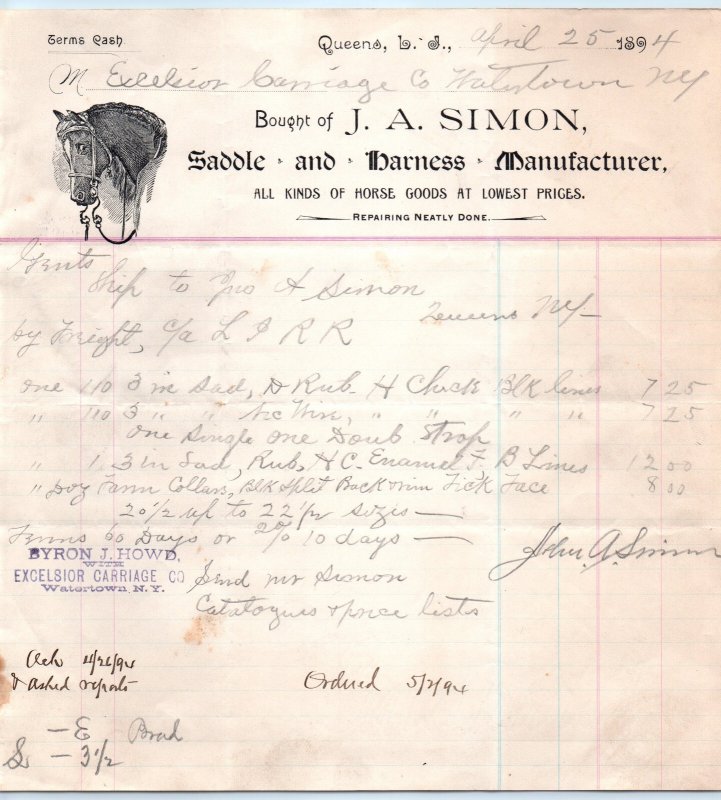 Terms Cash
Queens, L. I., April 25 1894
M Excelsior Carriage Co Watertown NY
Bought of J. A. SIMON,
Saddle and Harness Manufacturer,
ALL KINDS OF HORSE GOODS AT LOWEST PRICES.
REPAIRING NEATLY DONE.
Gents
Ship to Jno A Simon
Queens NY
by Freight, c/a L I R R
one 110 3 in Sad, D Rub. H Check Blk lines 7 25
" 110 3 " " Nic Wire, " " " " 7 25
one Single one Doub. Strap
" 1 3 in Sad, Rub, H C. Enamel F. B Lines 12 00
" Doz Farm Collars, Blk Split Back & rim Tick Face 8 00
20 1/2 up to 22 1/2 sizes —
Terms 60 Days or 2% 10 days —
John. A. Simon
BYRON J. HOWD,
WITH
EXCELSIOR CARRIAGE CO
Watertown, N.Y.
Send mr Simon
Catalogues & price lists
Ack 4/26/94
& asked reports
Ordered 5/2/94
— E Brad
S — 3 1/2